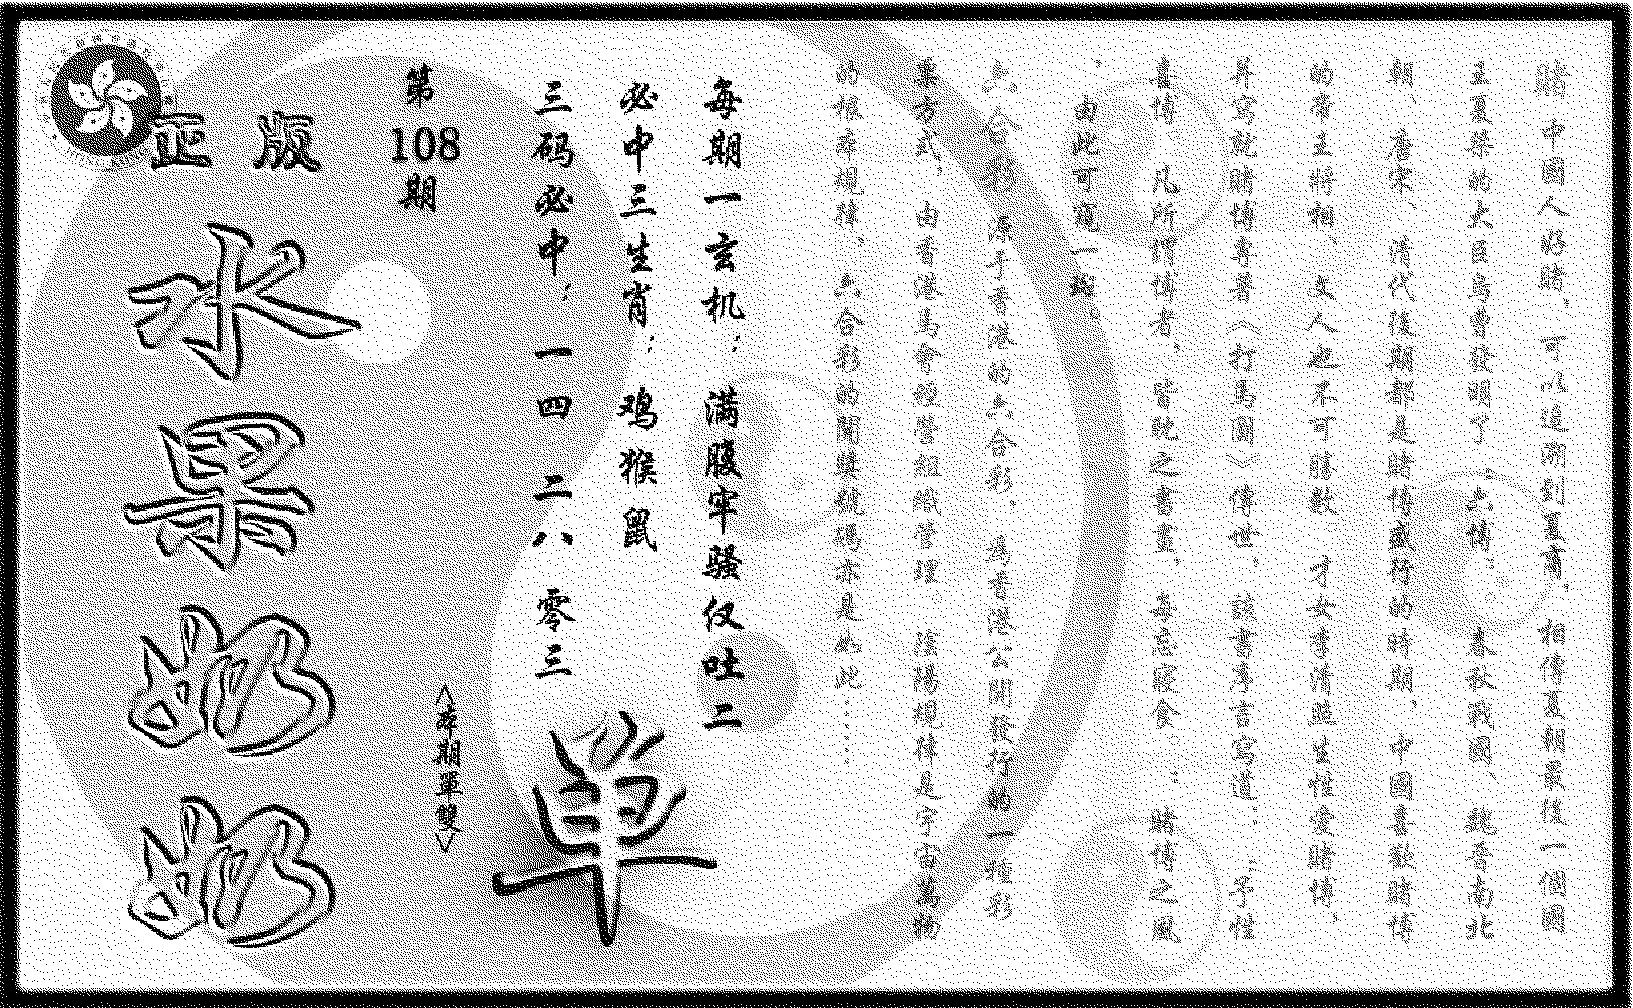 赌 中國人好賭，可以追溯到夏商，相傳夏朝最後一個國
王夏桀的大臣烏曹發明了“六博”。春秋戰國、魏晉南北
朝、唐宋、清代後期都是賭博盛行的時期，中國喜歡賭博
的帝王將相、文人也不可勝數，才女李清照生性愛賭博，
并寫就賭博專著《打馬圖》傳世，該書序言寫道：“予性
喜博，凡所謂博者，皆耽之晝夜，每忘寢食。”賭博之風
，由此可窺一斑。
六合彩，源于香港的六合彩，為香港公開發行的一種彩
票方式，由香港馬會經營組織管理，陰陽規律是宇宙萬物
的根本規律，六合彩的開獎號碼亦是如此……
每期一玄机：满腹牢骚仅吐二
必中三生肖：鸡猴鼠
三码必中：一四 二八 零三
單
<本期單雙>
第
108
期
正版
水果奶奶